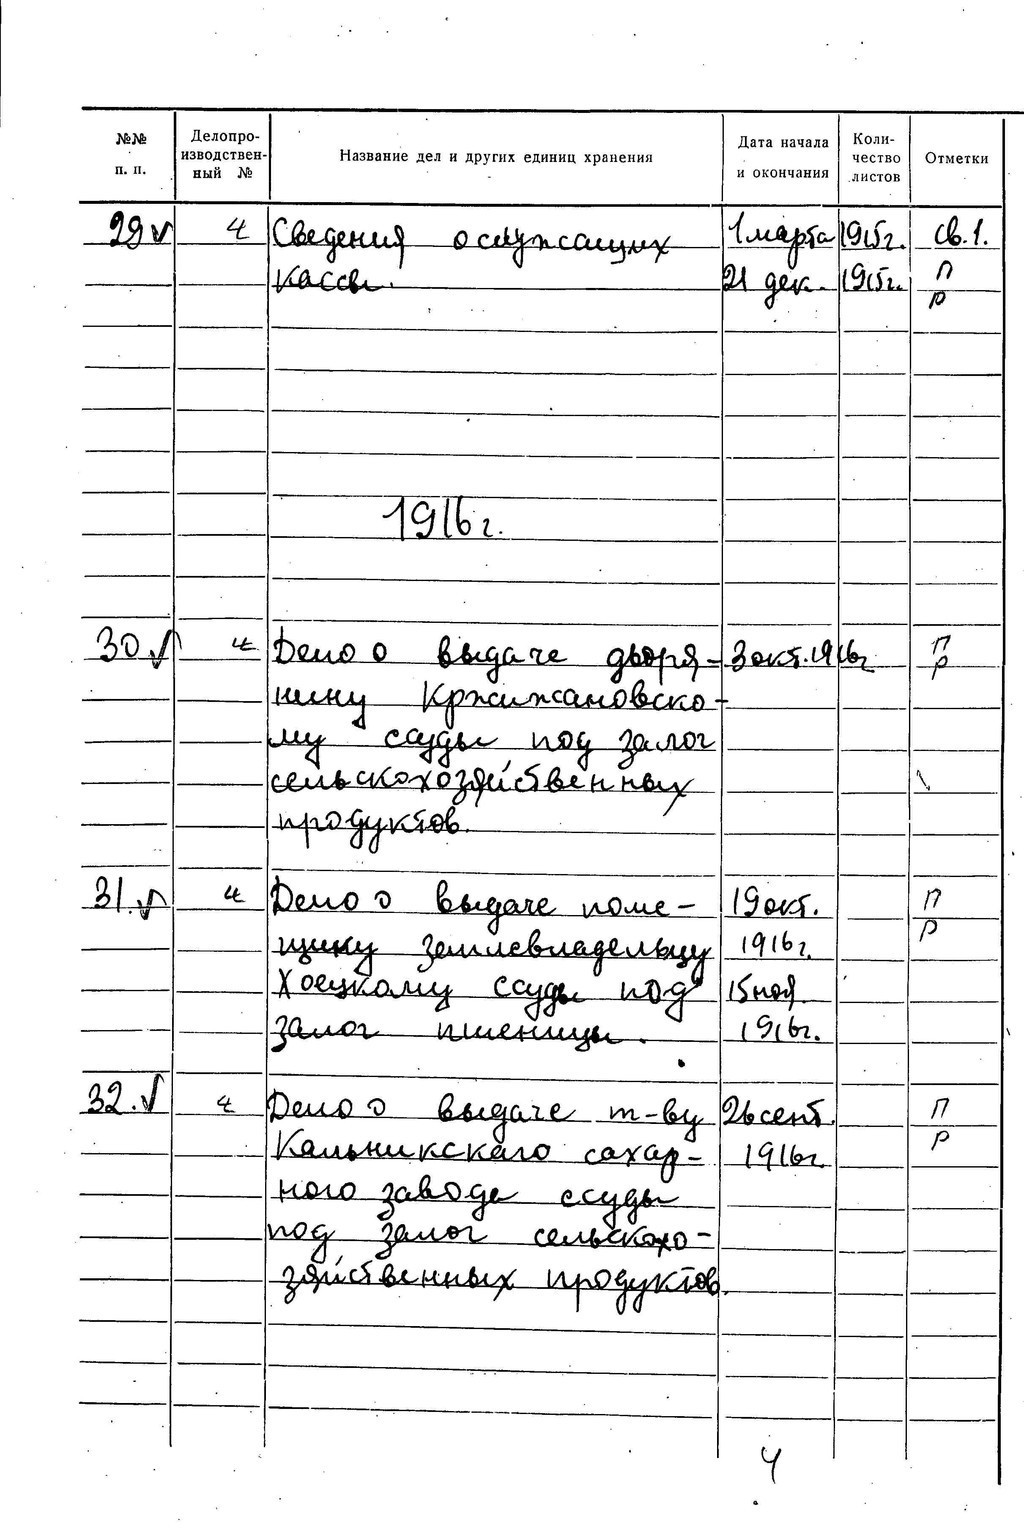 №№ п. п.
Делопро-
изводствен-
ный №
Название дел и других единиц хранения
Дата начала
и окончания
Коли-
чество
листов
Отметки
29 4 Сведения о служащих 1 марта 1915г. св. 1.
кассы. 21 дек. 1915г. П
Р
1916г.
30 Дело о выдаче дворя- 3 окт. 1916г П
Р
нину Кржижановско-
му ссуды под залог
сельскохозяйственных
продуктов.
31. Дело о выдаче поме- 19 окт. П
щику землевладельцу 1916г. Р
Хоецкому ссуды под 15 ноя
залог пшеницы. 1916г.
32. Дело о выдаче т-ву 26 сент. П
Кальникскаго сахар- 1916г. Р
ного завода ссуды
под залог сельскохо-
зяйственных продуктов.
4